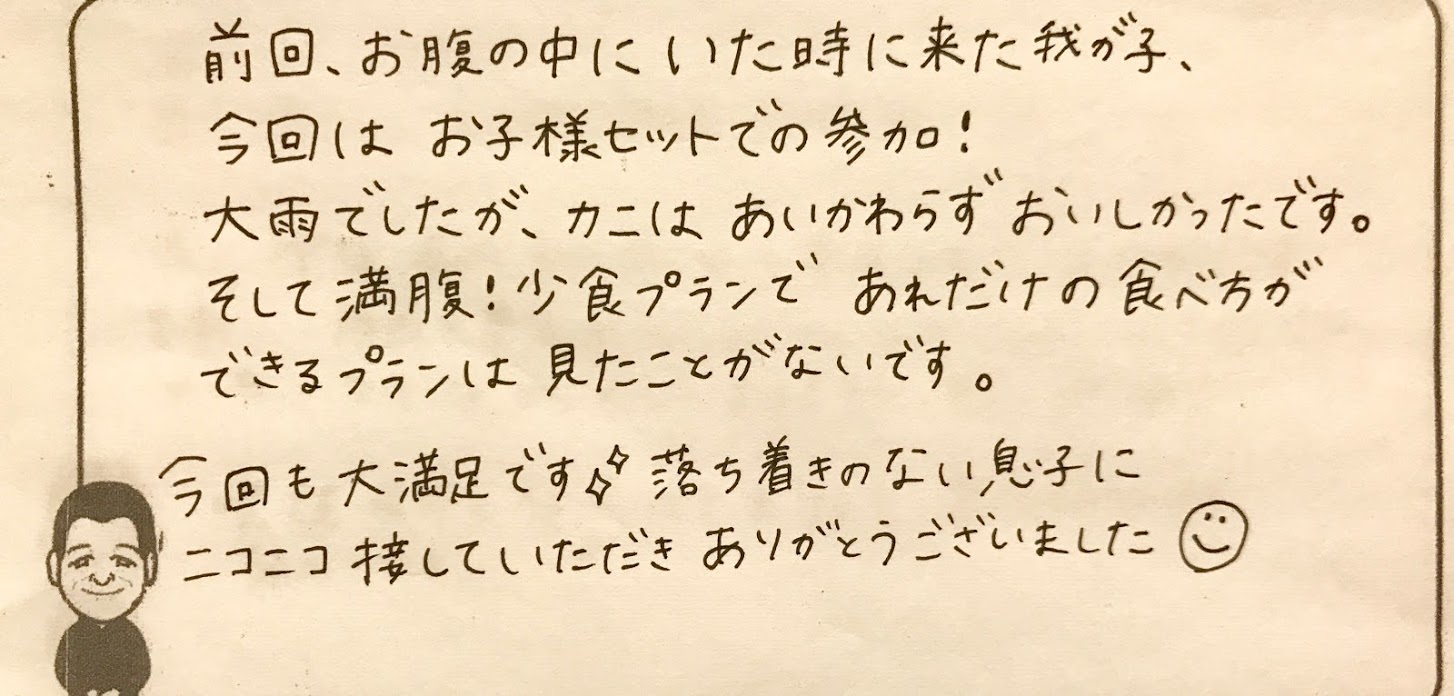 前回、お腹の中にいた時に来た我が子、
今回は お子様セットでの参加!
大雨でしたが、カニは あいかわらず おいしかったです。
そして満腹!少食プランで あれだけの食べ方が
できるプランは 見たことがないです。
今回も大満足です 落ち着きのない息子に
ニコニコ接していただき ありがとうございました